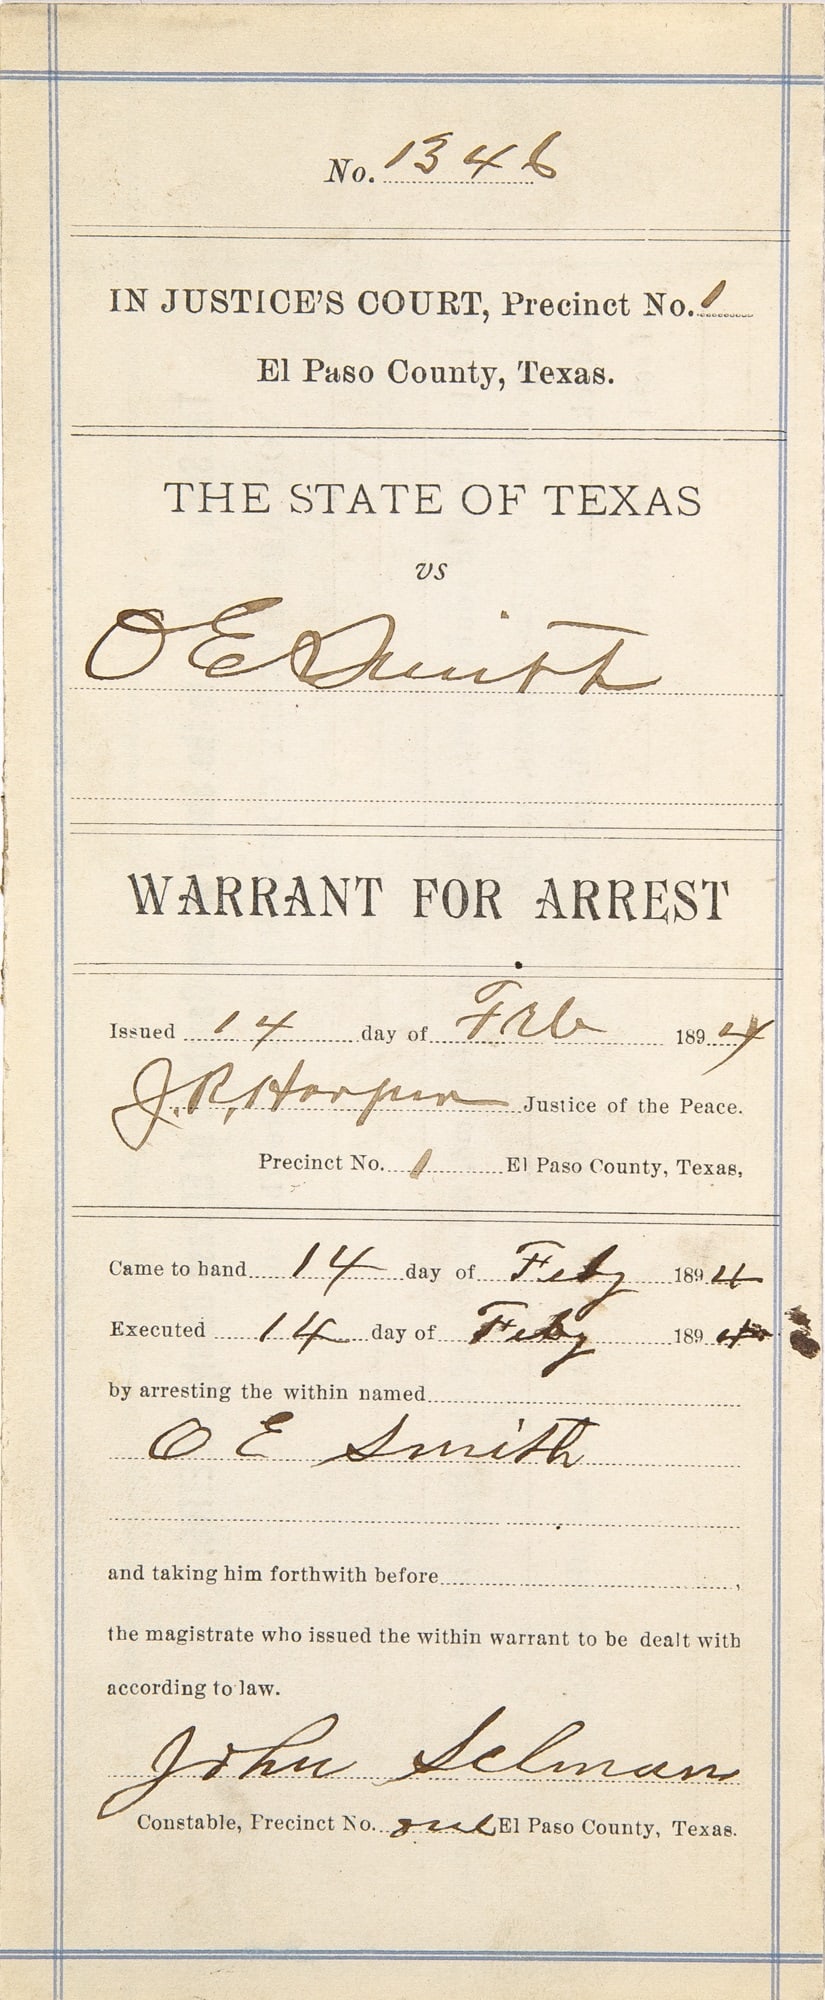 No. 1346
IN JUSTICE'S COURT, Precinct No. 1
El Paso County, Texas.
THE STATE OF TEXAS
vs
O E Smith
WARRANT FOR ARREST
Issued 14 day of Feb 1894
J. R. Harper Justice of the Peace.
Precinct No. 1 El Paso County, Texas,
Came to hand 14 day of Feby 1894
Executed 14 day of Feby 1894
by arresting the within named
O E Smith
and taking him forthwith before ,
the magistrate who issued the within warrant to be dealt with
according to law.
John Selman
Constable, Precinct No. one El Paso County, Texas.